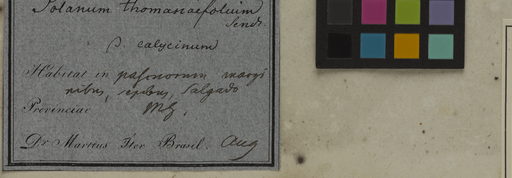 Solanum thomasiaefolium
Sendt.
β. calycinum
Habitat in pascuorum margi
nibus, sepibus, Salgado
Provinciae MG.
Dr. Martius Iter Brasil. Aug